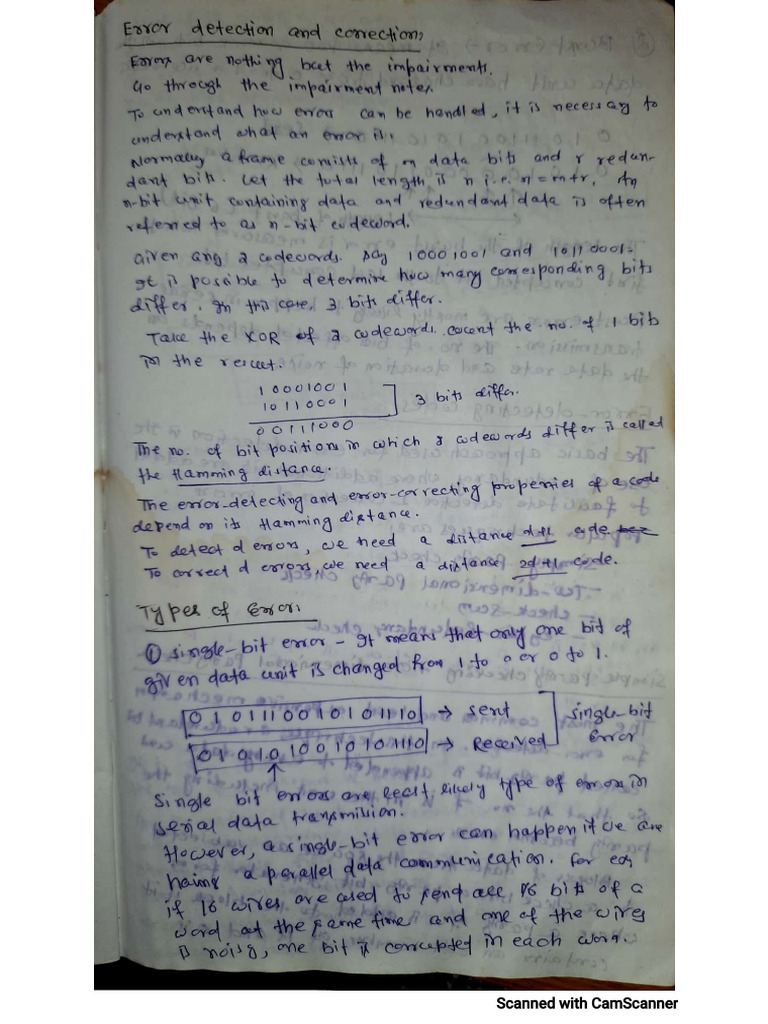 Error detection and correction:
Errors are nothing but the impairments.
Go through the impairment notes.
To understand how errors can be handled, it is necessary to
understand what an error is.
Normally a frame consists of m data bits and r redun-
dant bits. Let the total length is n i.e. n=m+r. An
n-bit unit containing data and redundant data is often
referred to as n-bit codeword.
Given any 2 codewords. say 10001001 and 10110001.
It is possible to determine how many corresponding bits
differ. In this case, 3 bits differ.
Take the XOR of 2 codewords. count the no. of 1 bits
in the result.
10001001
10110001
3 bits differ.
00111000
The no. of bit positions in which 2 codewords differ is called
the Hamming distance.
The error-detecting and error-correcting properties of a code
depend on its Hamming distance.
To detect d errors, we need a distance d+1 code
To correct d errors, we need a distance 2d+1 code.
Types of Error:
① Single-bit error - It means that only one bit of
given data unit is changed from 1 to 0 or 0 to 1.
0 1 0 1 1 1 0 0 1 0 1 0 1 1 1 0 → sent
Single-bit
Error
0 1 0 1 0 1 0 0 1 0 1 0 1 1 1 0 → Received
Single bit errors are least likely type of errors in
serial data transmission.
However, a single-bit error can happen if we are
having a parallel data communication. For eg
if 16 wires are used to send all 16 bits of a
word at the same time and one of the wires
is noisy, one bit is corrupted in each word.
Scanned with CamScanner